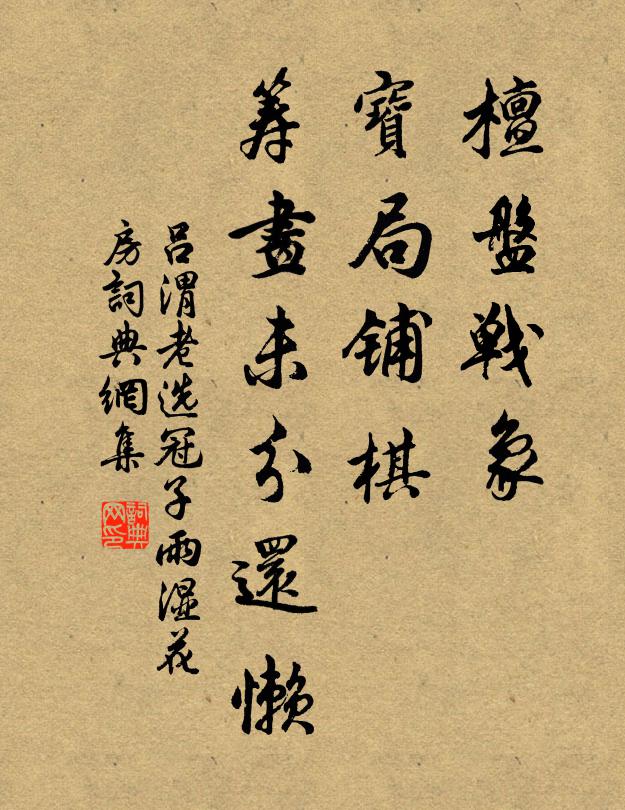 檀盤戰象
寶局鋪棋
籌畫未分還懶
呂渭老选冠子雨湿花
房詞典網集
詞典
网印